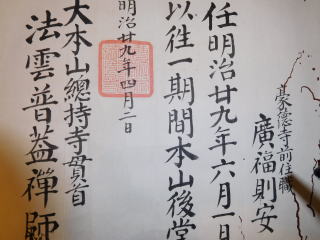 豪徳寺前住職
廣福則安
任明治廿九年六月一日
以往一期間本山後堂
明治廿九年四月二日
大本山總持寺貫首
法雲普蓋禪師